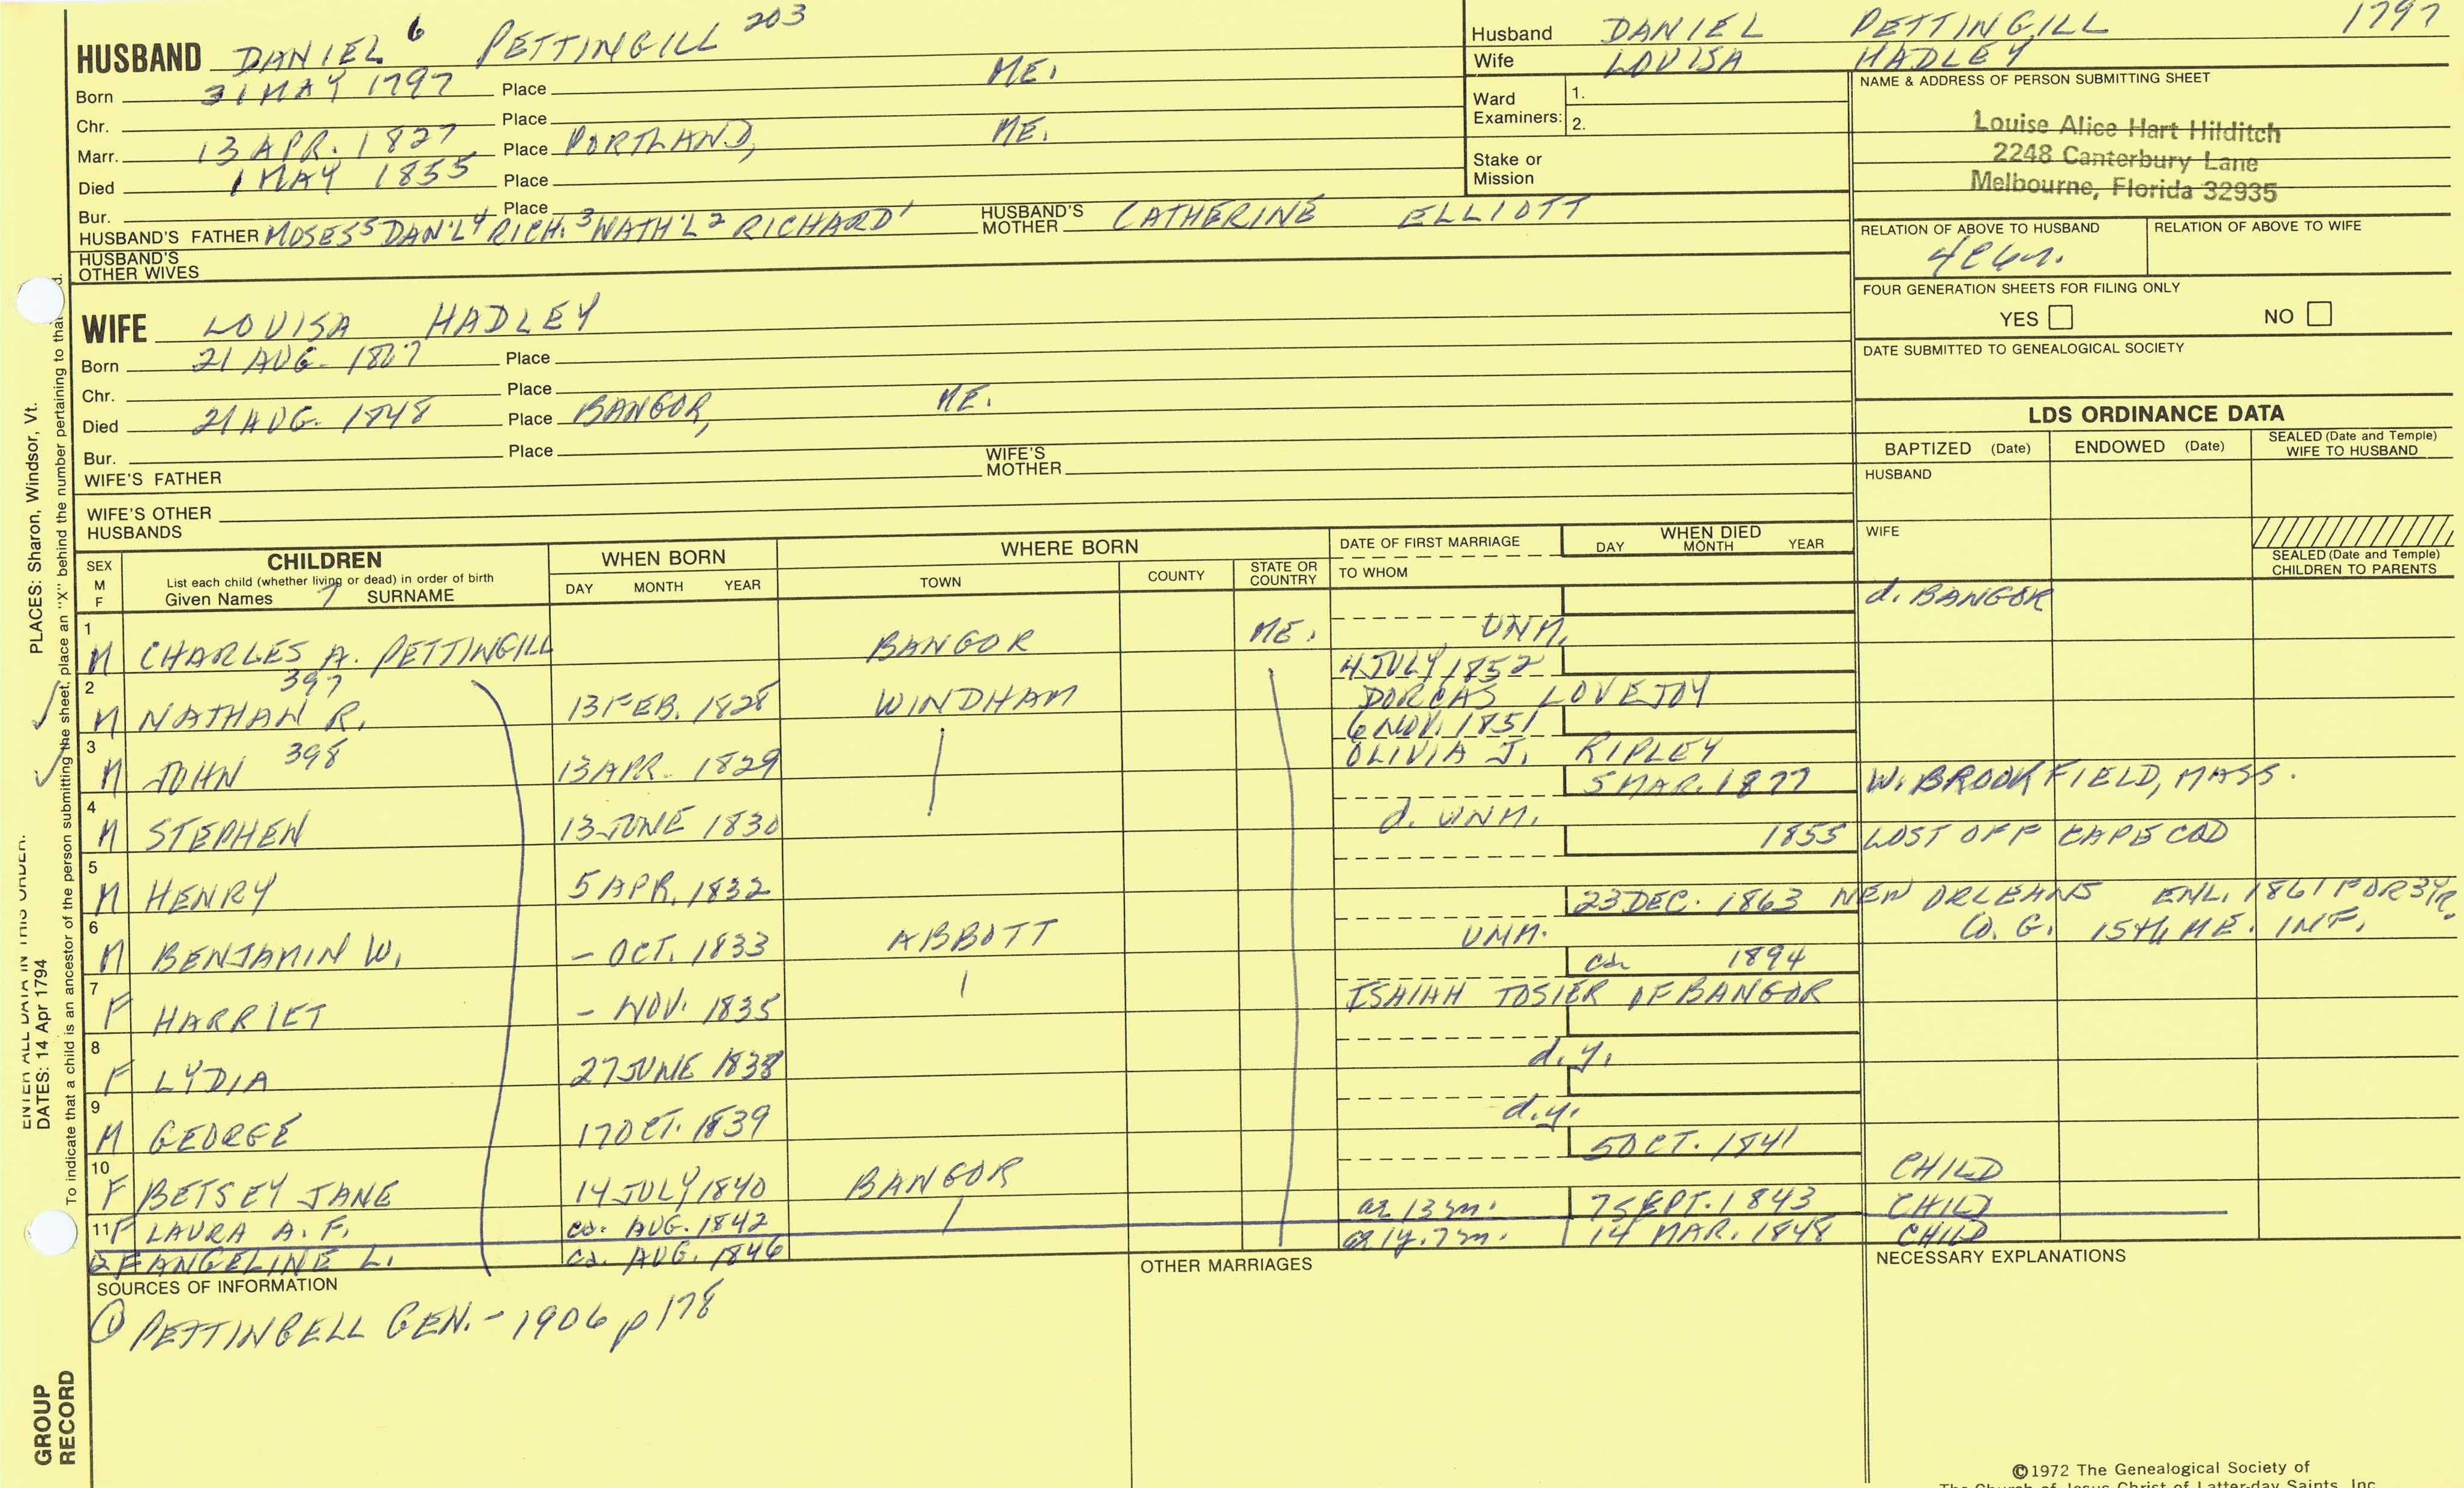 HUSBAND DANIEL 6 PETTINGILL 203
Born 31 MAY 1797 Place ME.
Chr. Place
Marr. 13 APR. 1827 Place PORTLAND, ME.
Died 1 MAY 1855 Place
Bur. Place
HUSBAND'S FATHER MOSES 5 DAN'L 4 RICH. 3 NATH'L 2 RICHARD 1 HUSBAND'S MOTHER CATHERINE ELLIOTT
HUSBAND'S OTHER WIVES
Husband DANIEL PETTINGILL 1797
Wife LOUISA HADLEY
Ward Examiners: 1.
2.
Stake or Mission
NAME & ADDRESS OF PERSON SUBMITTING SHEET
Louise Alice Hart Hilditch
2248 Canterbury Lane
Melbourne, Florida 32935
RELATION OF ABOVE TO HUSBAND RELATION OF ABOVE TO WIFE
FOUR GENERATION SHEETS FOR FILING ONLY
YES NO
DATE SUBMITTED TO GENEALOGICAL SOCIETY
WIFE LOUISA HADLEY
Born 21 AUG. 1807 Place
Chr. Place
Died 21 AUG. 1848 Place BANGOR, ME.
Bur. Place
WIFE'S FATHER WIFE'S MOTHER
WIFE'S OTHER HUSBANDS
LDS ORDINANCE DATA
BAPTIZED (Date) ENDOWED (Date) SEALED (Date and Temple) WIFE TO HUSBAND
HUSBAND
WIFE
SEALED (Date and Temple) CHILDREN TO PARENTS
SEX M F CHILDREN WHEN BORN WHERE BORN DATE OF FIRST MARRIAGE WHEN DIED
List each child (whether living or dead) in order of birth
Given Names 7 SURNAME DAY MONTH YEAR TOWN COUNTY STATE OR COUNTRY TO WHOM DAY MONTH YEAR
1 M CHARLES A. PETTINGILL BANGOR ME. UNM. d. BANGOR
2 397 4 JULY 1852
M NATHAN R. 13 FEB. 1828 WINDHAM DORCAS LOVEJOY
3 398 6 NOV. 1851
M JOHN 13 APR. 1829 OLIVIA J. RIPLEY
4 5 MAR. 1877 W. BROOKFIELD, MASS.
M STEPHEN 13 JUNE 1830 d. UNM.
5 1855 LOST OFF CAPE COD
M HENRY 5 APR. 1832
6 23 DEC. 1863 NEW ORLEANS ENL. 1861 FOR 3 YR.
M BENJAMIN W. - OCT. 1833 ABBOTT UNM. CO. G. 15TH ME. INF.
7 ca 1894
F HARRIET - NOV. 1835 ISAIAH TOSIER OF BANGOR
8 F LYDIA 27 JUNE 1838 d.y.
9 M GEORGE 17 OCT. 1839 d.y.
10 5 OCT. 1841
F BETSEY JANE 14 JULY 1840 BANGOR CHILD
11 F LAURA A. F. ca. AUG. 1842 ae 13 m. 7 SEPT. 1843 CHILD
12 F ANGELINE L. ca. AUG. 1846 ae 1y. 7 m. 14 MAR. 1848 CHILD
SOURCES OF INFORMATION OTHER MARRIAGES NECESSARY EXPLANATIONS
① PETTINGELL GEN. - 1906 p 178
PLACES: Sharon, Windsor, Vt.
ENTER ALL DATA IN THIS ORDER:
DATES: 14 Apr 1794
To indicate that a child is an ancestor of the person submitting the sheet, place an "X" behind the number pertaining to that
GROUP RECORD
©1972 The Genealogical Society of
The Church of Jesus Christ of Latter-day Saints, Inc.